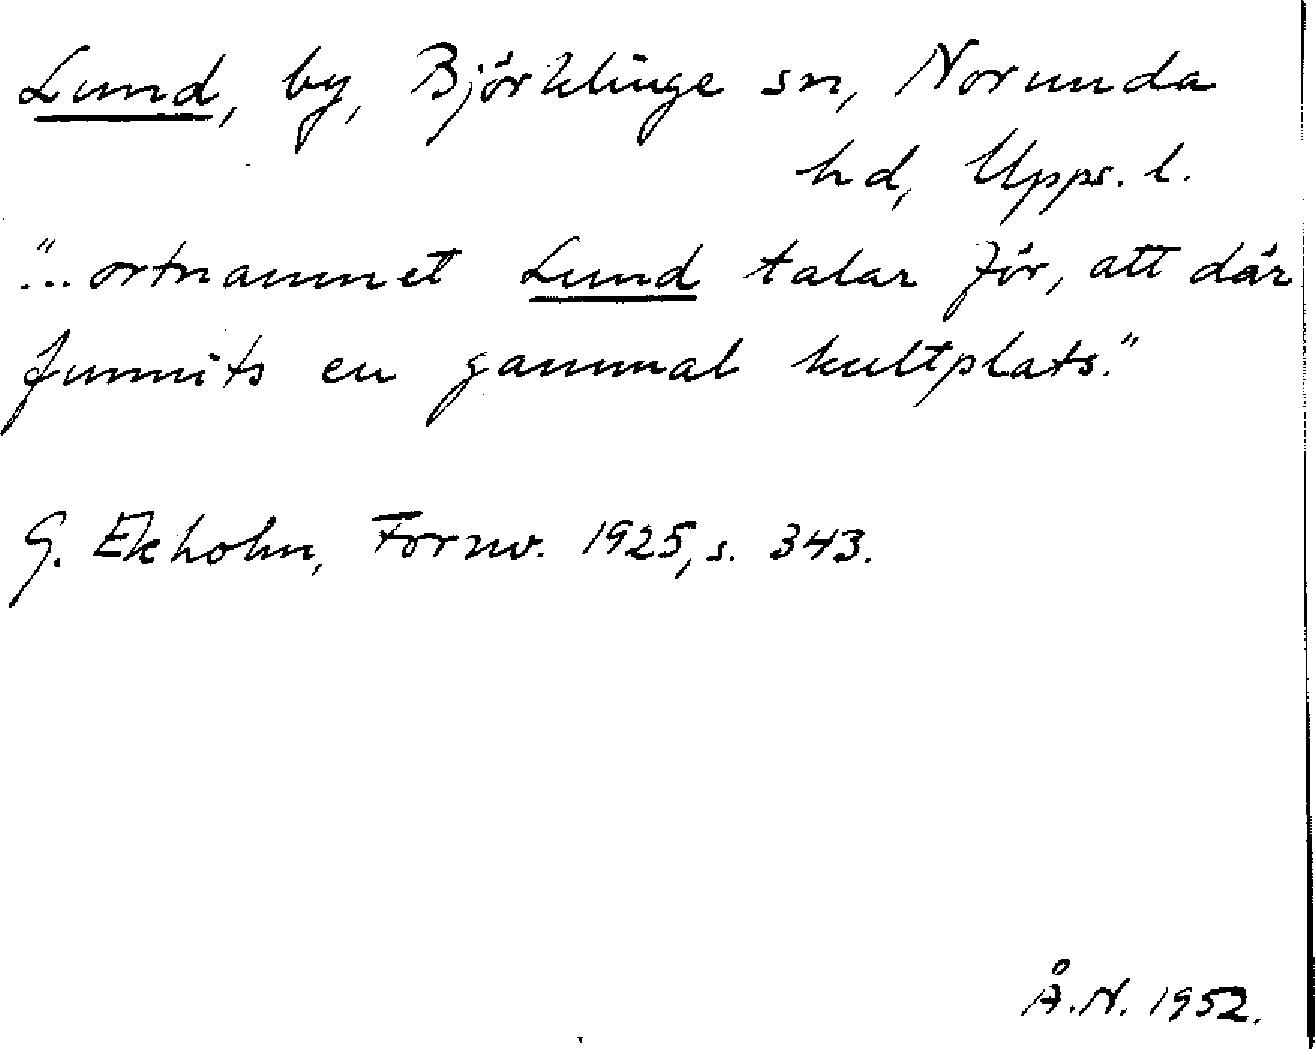 Lund, by, Björklinge sn, Norunda
hd, Upps. l.
"... ortnamnet Lund talar för, att där
funnits en gammal kultplats."
G. Ekholm, Fornv. 1925, s. 343.
Å.N. 1952.